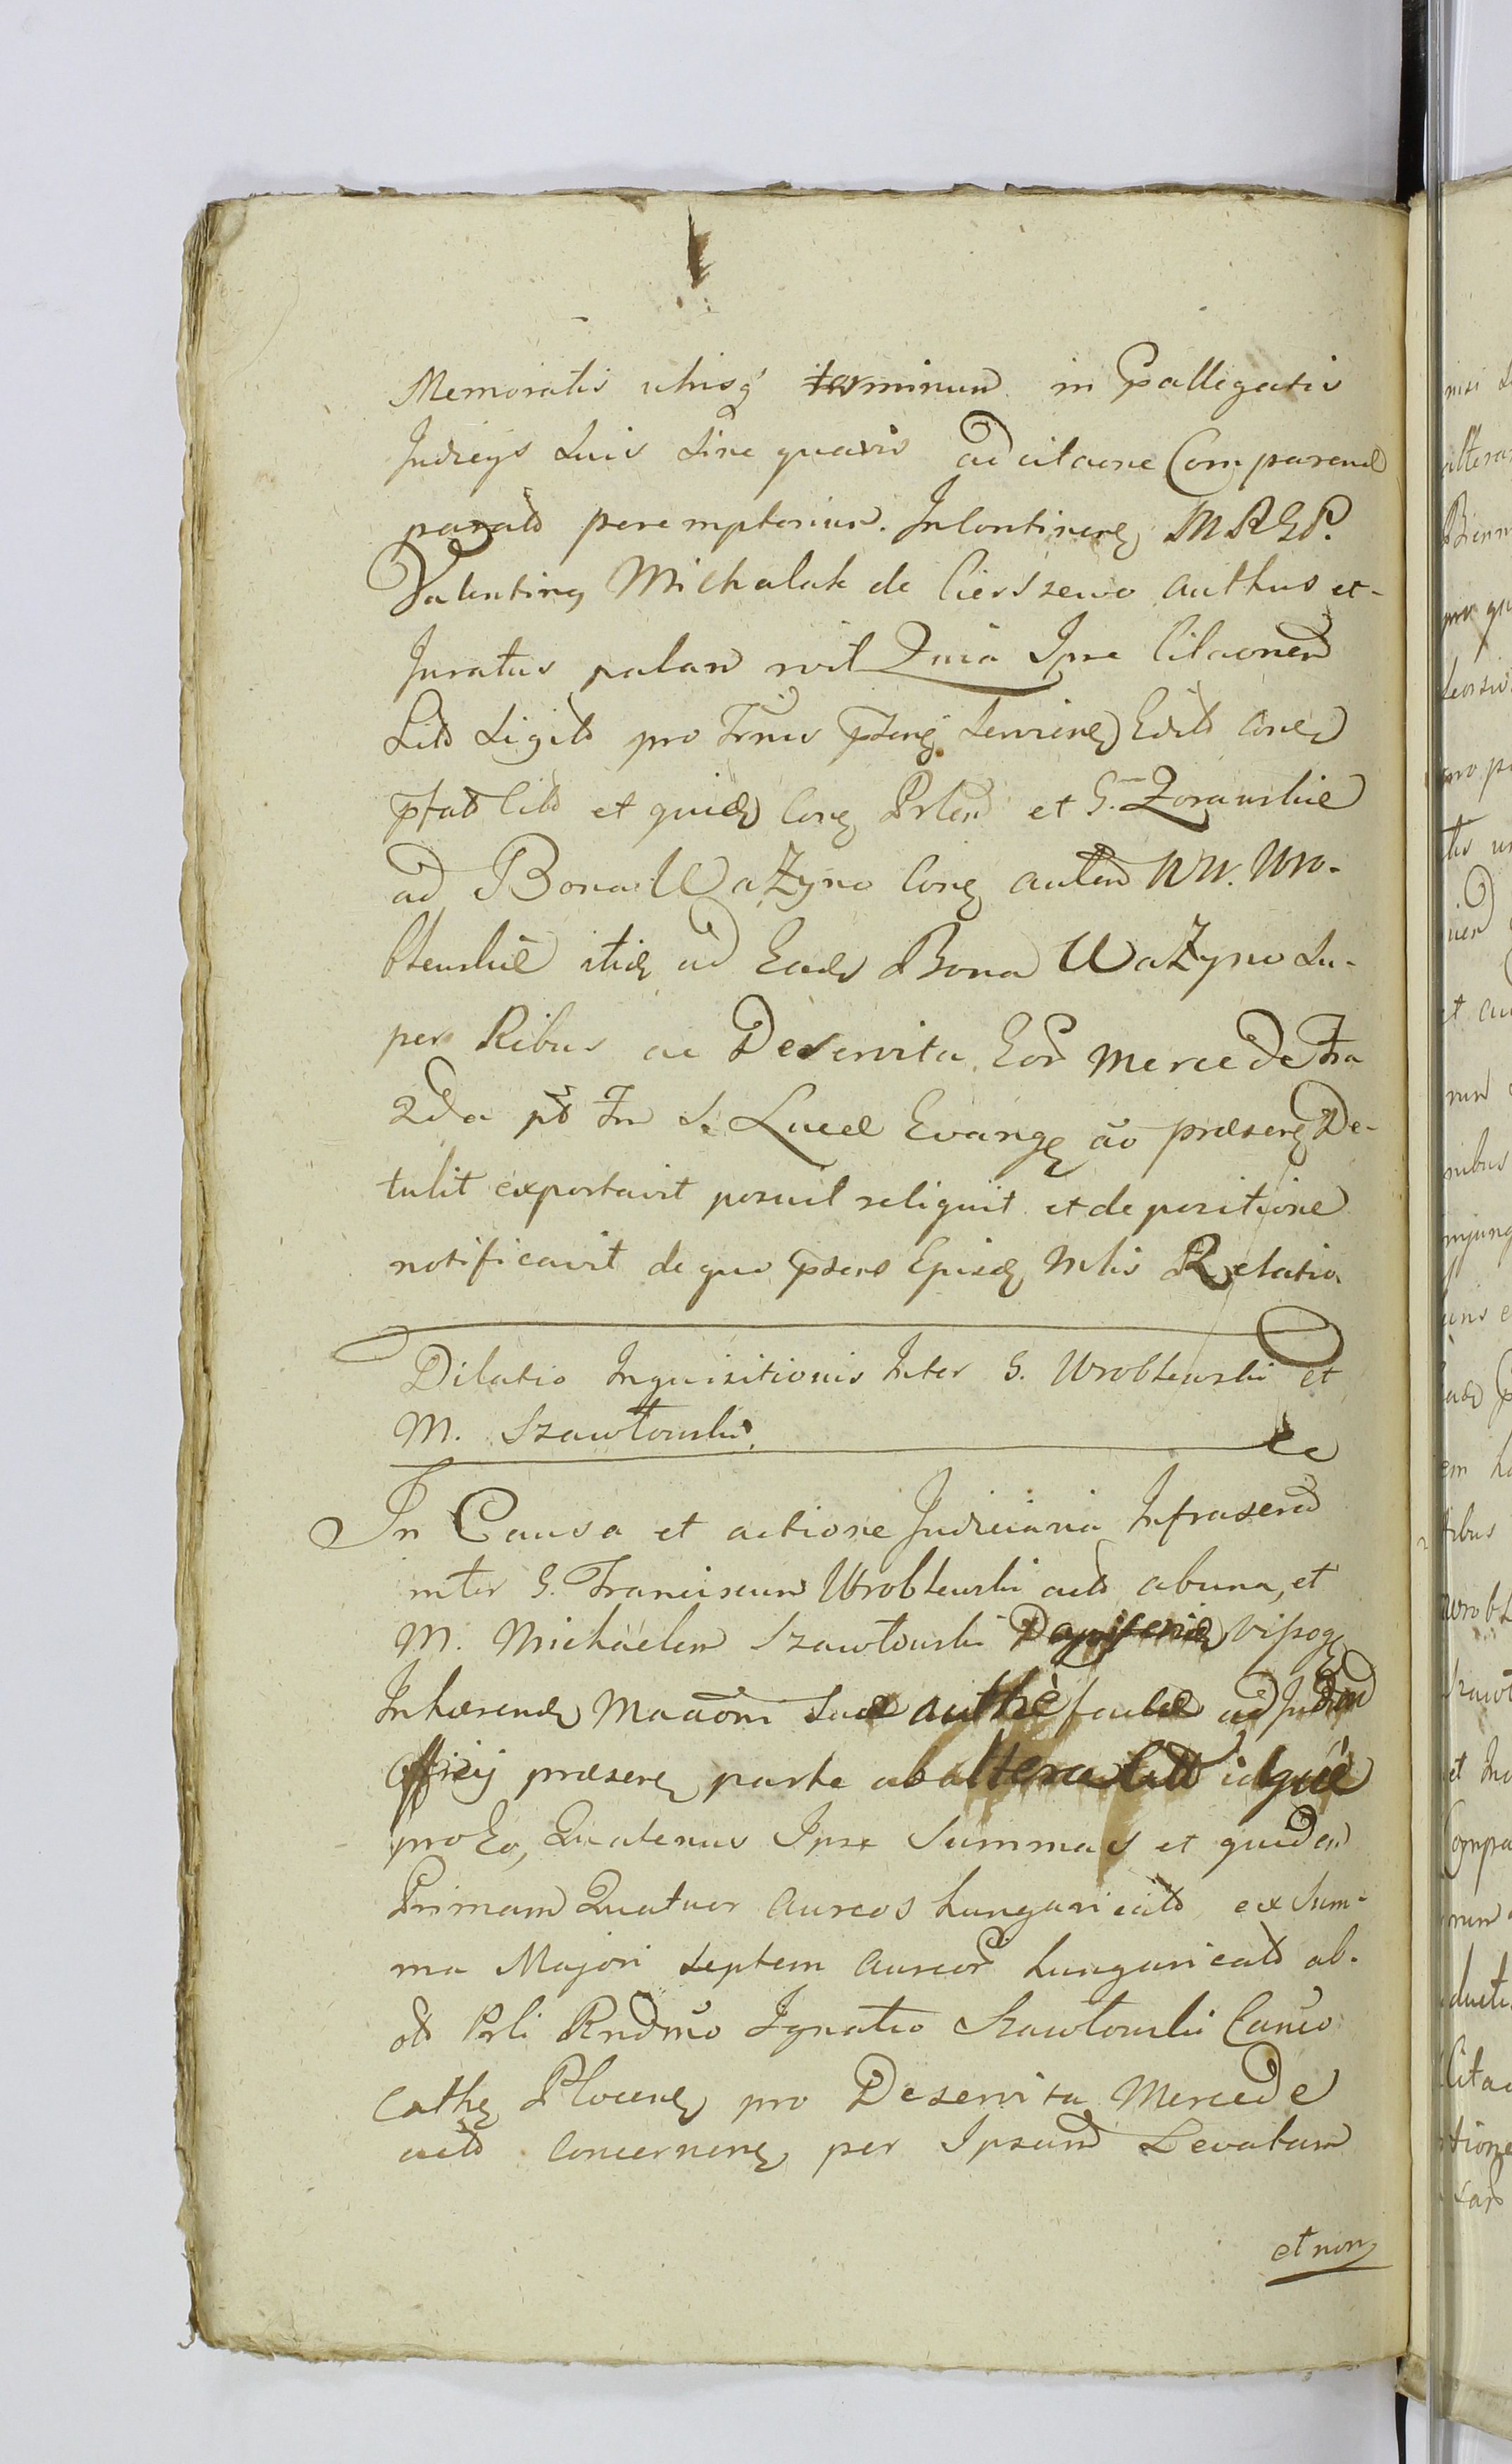 Memoratis utrisq terminum in Pallegatis
Judicijs suis sine quavis adcitaone Comparend
parato peremptorium. In Continen MRGP.
Valentinq Michalak de Cierszewo authus et
Juratus palam rvit Quia Ipse Citaonem
Litt Sigitt pro Trnis psenq servien Edit Con
pfat Citt et quid Con Prlen et G. Zorawskie
ad Bona Ważyno Con autem WW. Wro-
błewskie itid ad Ead Bona Ważyno Su-
per Ribus ac Deservita Eor mercede Fra
2da pt Fm S. Lucæ Evang ao præsen De-
tulit exportavit posuit reliquit et de positione
notificavit de quo psens Episd Mlis Relatio
Dilatio Inquisitionis Inter G. Wroblewski et
M. Szawłowski
In Causa et actione Judiciaria Infrascrd
inter G. Franciscum Wroblewski act abuna, et
M. Michaelem Szawłowski Dapiferid Visog
Inhærend Maaom suæ authè factæ ad Judm
Officij præsen parte ab altera Citt idque
pro Eo, Quatenus Ipse Summas et quidem
Primam Quatuor aureos hungaricalt ex sum-
ma Majori septem aureor hungaricalt ab
ot Prli Rndmo Ignatio Szawłowski Canco
Cath Plocen pro Deservita Mercede
actt concernen per Ipsum Levatam
et non